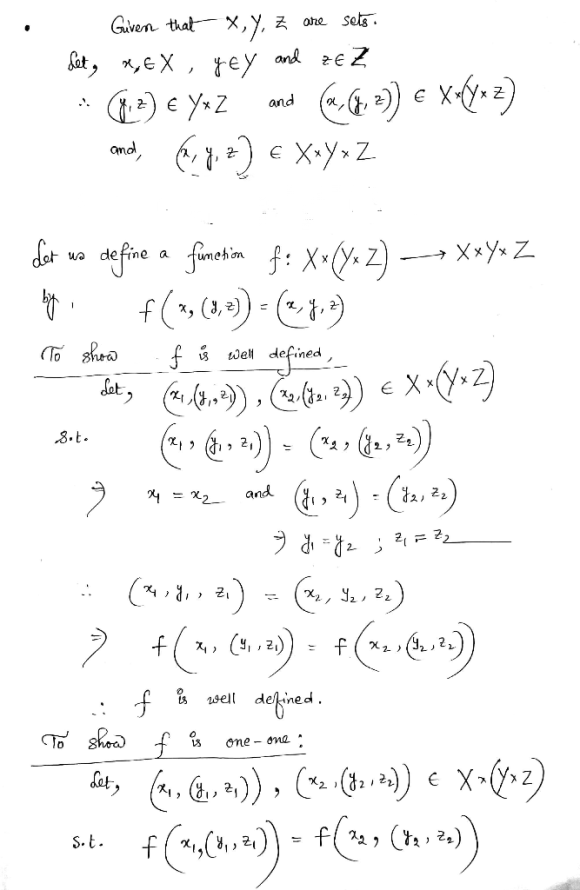 • Given that X, Y, Z are sets.
Let, x, ∈ X, y ∈ Y and z ∈ Z
∴ (y, z) ∈ Y×Z and (x, (y, z)) ∈ X×(Y×Z)
and, (x, y, z) ∈ X×Y×Z
Let us define a function f: X×(Y×Z) ⟶ X×Y×Z
by, f(x, (y, z)) = (x, y, z)
To show f is well defined,
Let, (x₁, (y₁, z₁)), (x₂, (y₂, z₂)) ∈ X×(Y×Z)
s.t. (x₁, (y₁, z₁)) = (x₂, (y₂, z₂))
⇒ x₁ = x₂ and (y₁, z₁) = (y₂, z₂)
⇒ y₁ = y₂ ; z₁ = z₂
∴ (x₁, y₁, z₁) = (x₂, y₂, z₂)
⇒ f(x₁, (y₁, z₁)) = f(x₂, (y₂, z₂))
∴ f is well defined.
To show f is one-one :
Let, (x₁, (y₁, z₁)), (x₂, (y₂, z₂)) ∈ X×(Y×Z)
s.t. f(x₁, (y₁, z₁)) = f(x₂, (y₂, z₂))